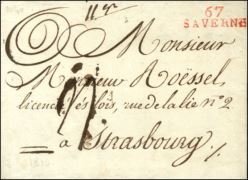 67
SAVERNE
Monsieur
Monsieur Roëssel,
licencié és lois, rue de la lie n.º 2
a Strasbourg ./.